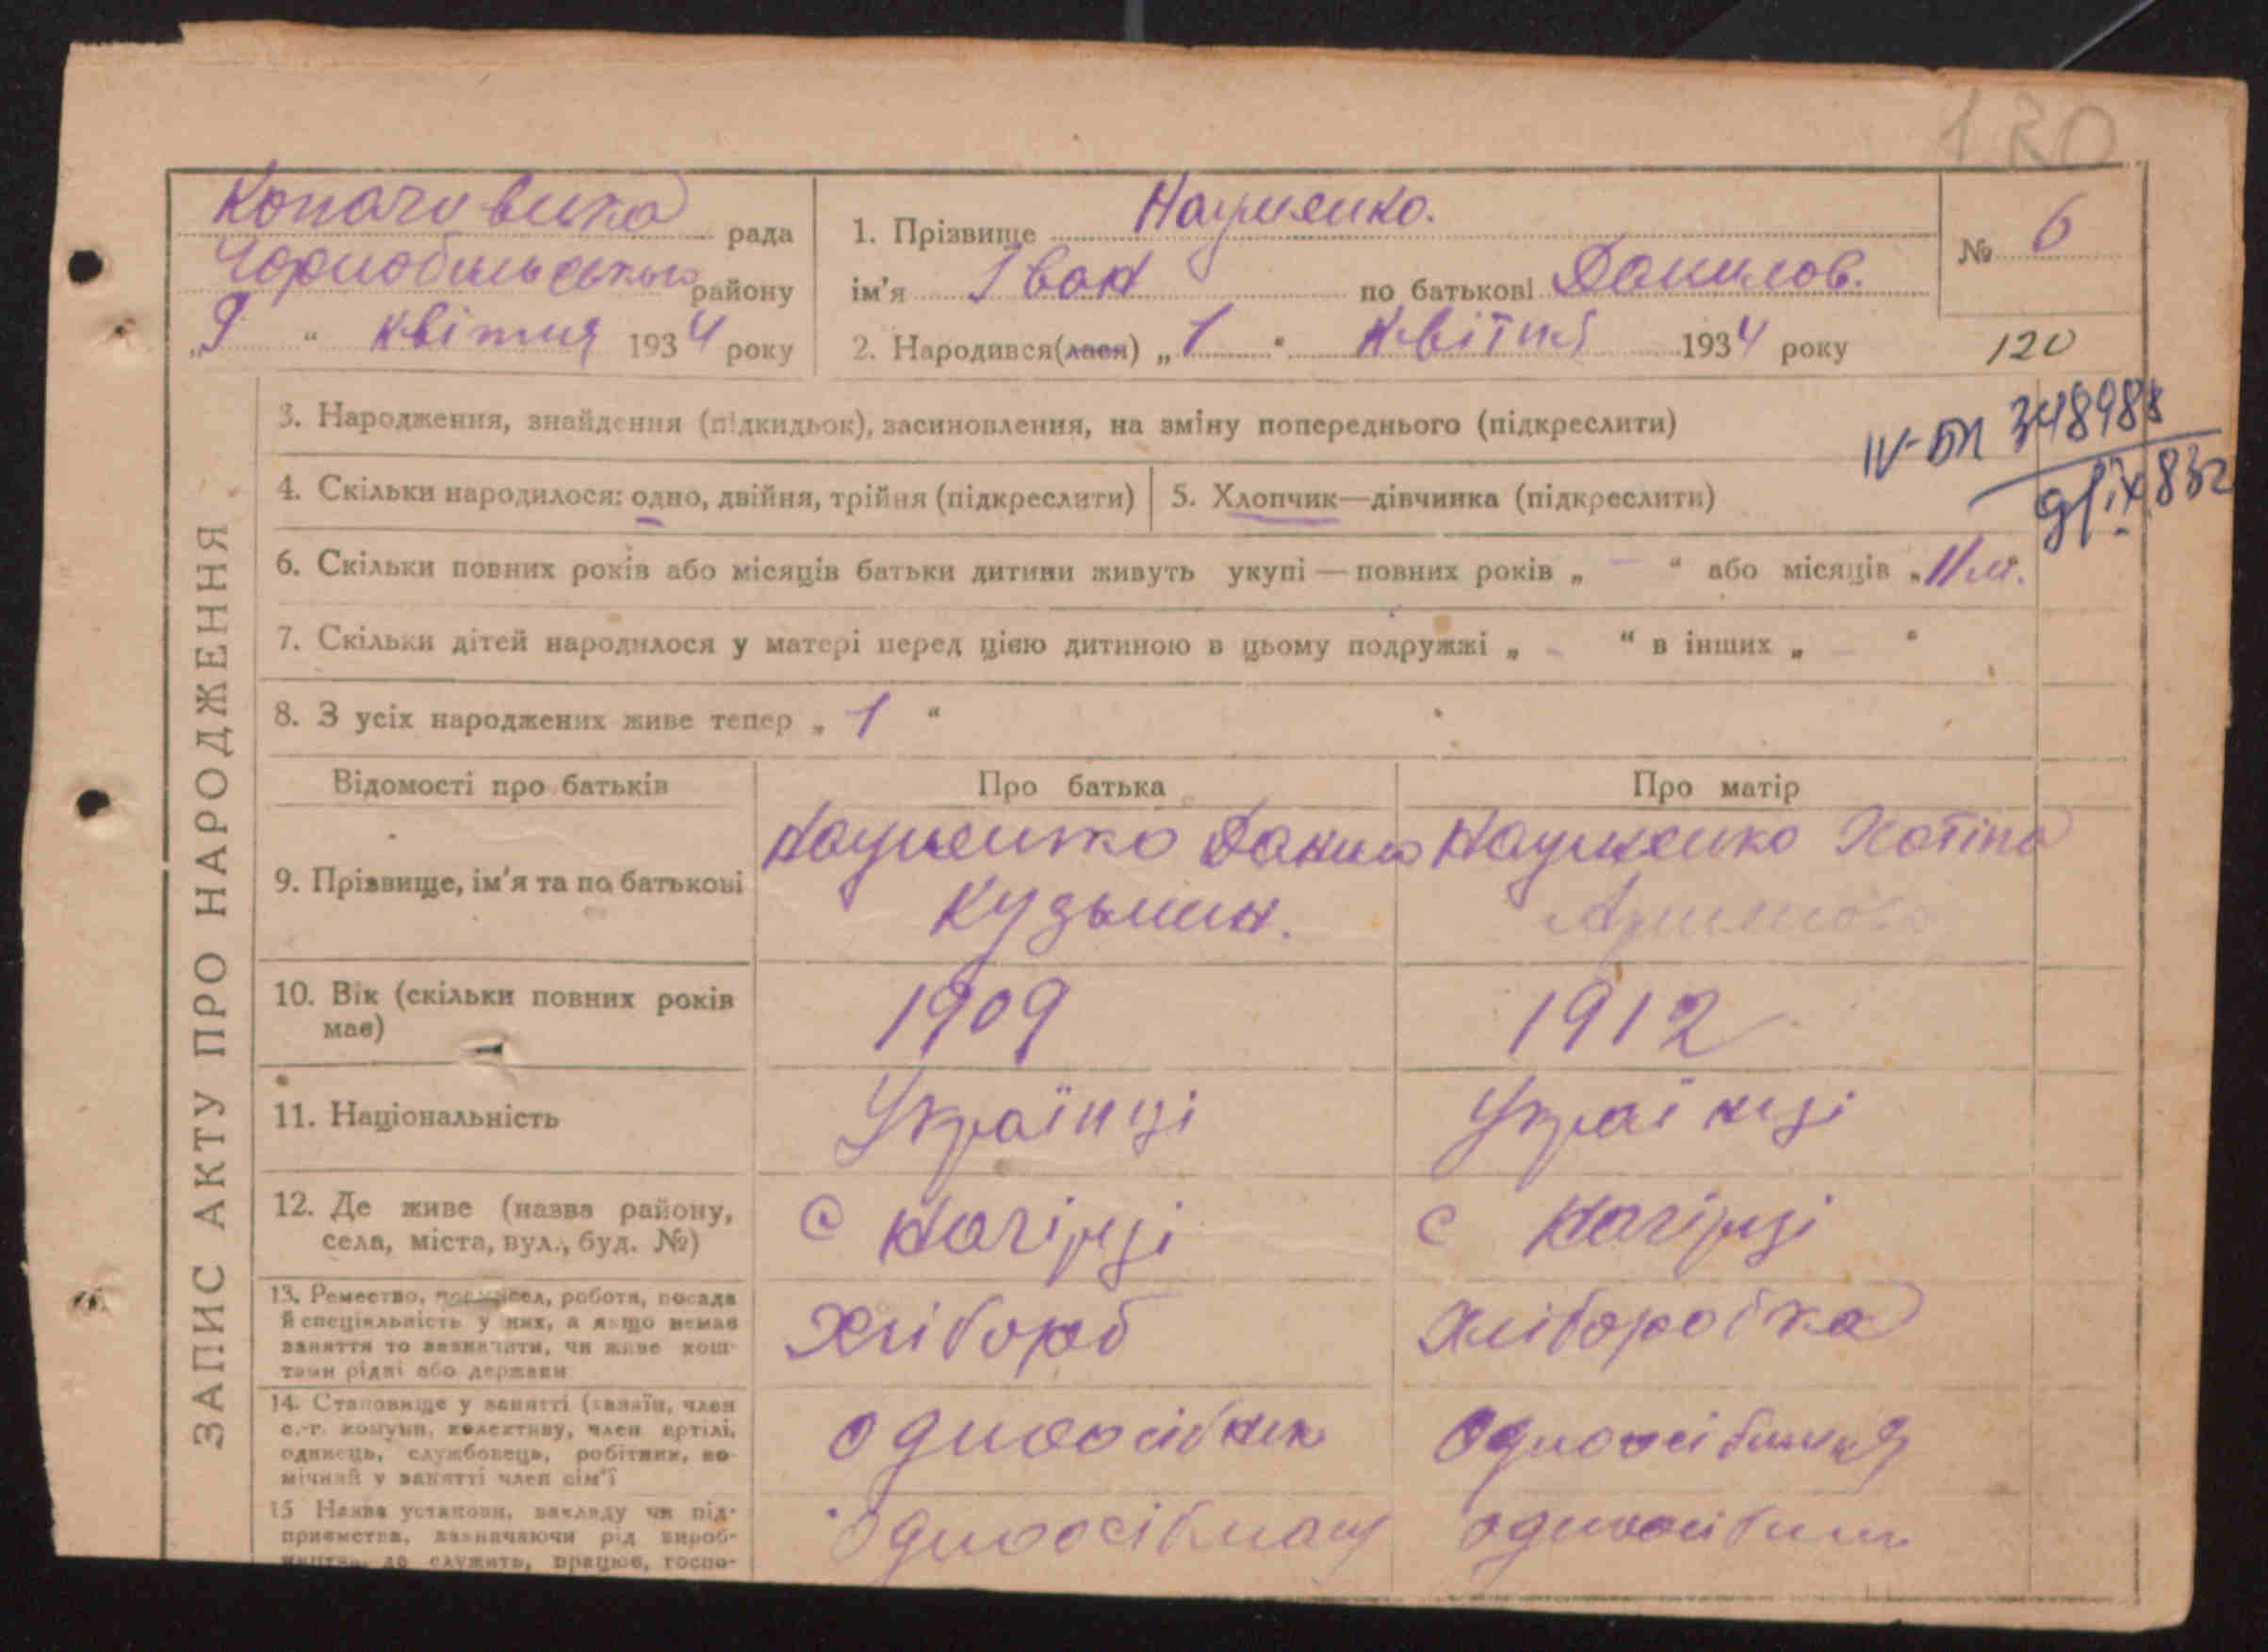 120
Копачівська рада
Чорнобильського району
„9“ квітня 1934 року
1. Прізвище Науменко.
ім'я Іван по батькові Данилов.
2. Народився(лася) „1“ квітня 1934 року
№ 6
120
ЗАПИС АКТУ ПРО НАРОДЖЕННЯ
3. Народження, знайдення (підкидьок), засиновлення, на зміну попереднього (підкреслити)
IV-БЛ 348988
9/IX 83г
4. Скільки народилося: одно, двійня, трійня (підкреслити)
5. Хлопчик—дівчинка (підкреслити)
6. Скільки повних років або місяців батьки дитини живуть укупі—повних років „ – “ або місяців „11 м.
7. Скільки дітей народилося у матері перед цією дитиною в цьому подружжі „ – “ в інших „ – “
8. З усіх народжених живе тепер „ 1 “
Відомості про батьків
Про батька
Про матір
9. Прізвище, ім'я та по батькові
Науменко Данило
Кузьмин.
Науменко
10. Вік (скільки повних років
має)
1909
1912
11. Національність
Українці
Українці
12. Де живе (назва району,
села, міста, вул., буд. №)
с Нагірці
с Нагірці
13. Ремество, промисел, робота, посада
й спеціяльність у них, а якщо немає
заняття то визначити, чи живе кош-
тами рідні або держави
Хлібороб
Хліборобка
14. Становище у занятті (хазяїн, член
с.-г. комуни, колективу, член артілі,
одинець, службовець, робітник, по-
мічний у занятті член сім'ї
одноосібник
одноосібниця
15 Назва установи, закладу чи під-
приємства, зазначаючи рід вироб-
ництва, де служить, працює, госпо-